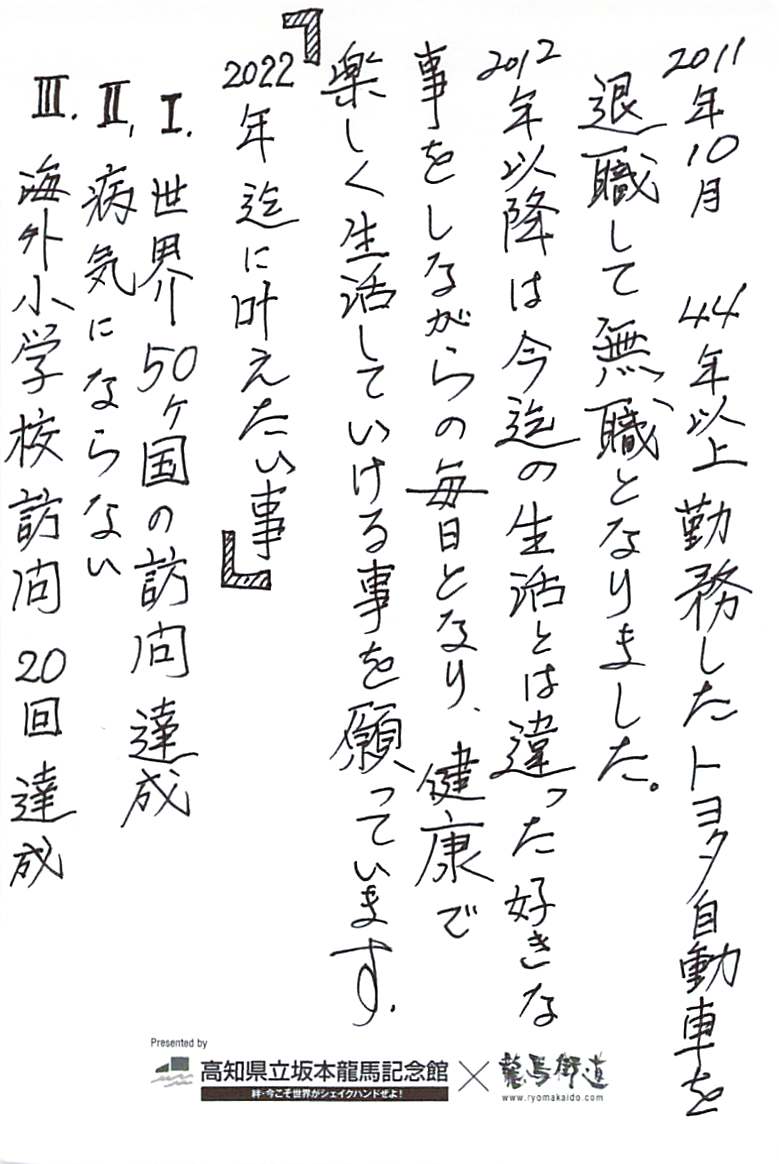 2011年10月 44年以上勤務したトヨタ自動車を
退職して無職となりました。
2012年以降は今迄の生活とは違った好きな
事をしながらの毎日となり、健康で
楽しく生活していける事を願っています.
『2022年迄に叶えたい事』
I. 世界50ヶ国の訪問達成
II, 病気にならない
III. 海外小学校訪問20回達成
Presented by
高知県立坂本龍馬記念館×龍馬街道
絆・今こそ世界がシェイクハンドせよ!
www.ryomakaido.com